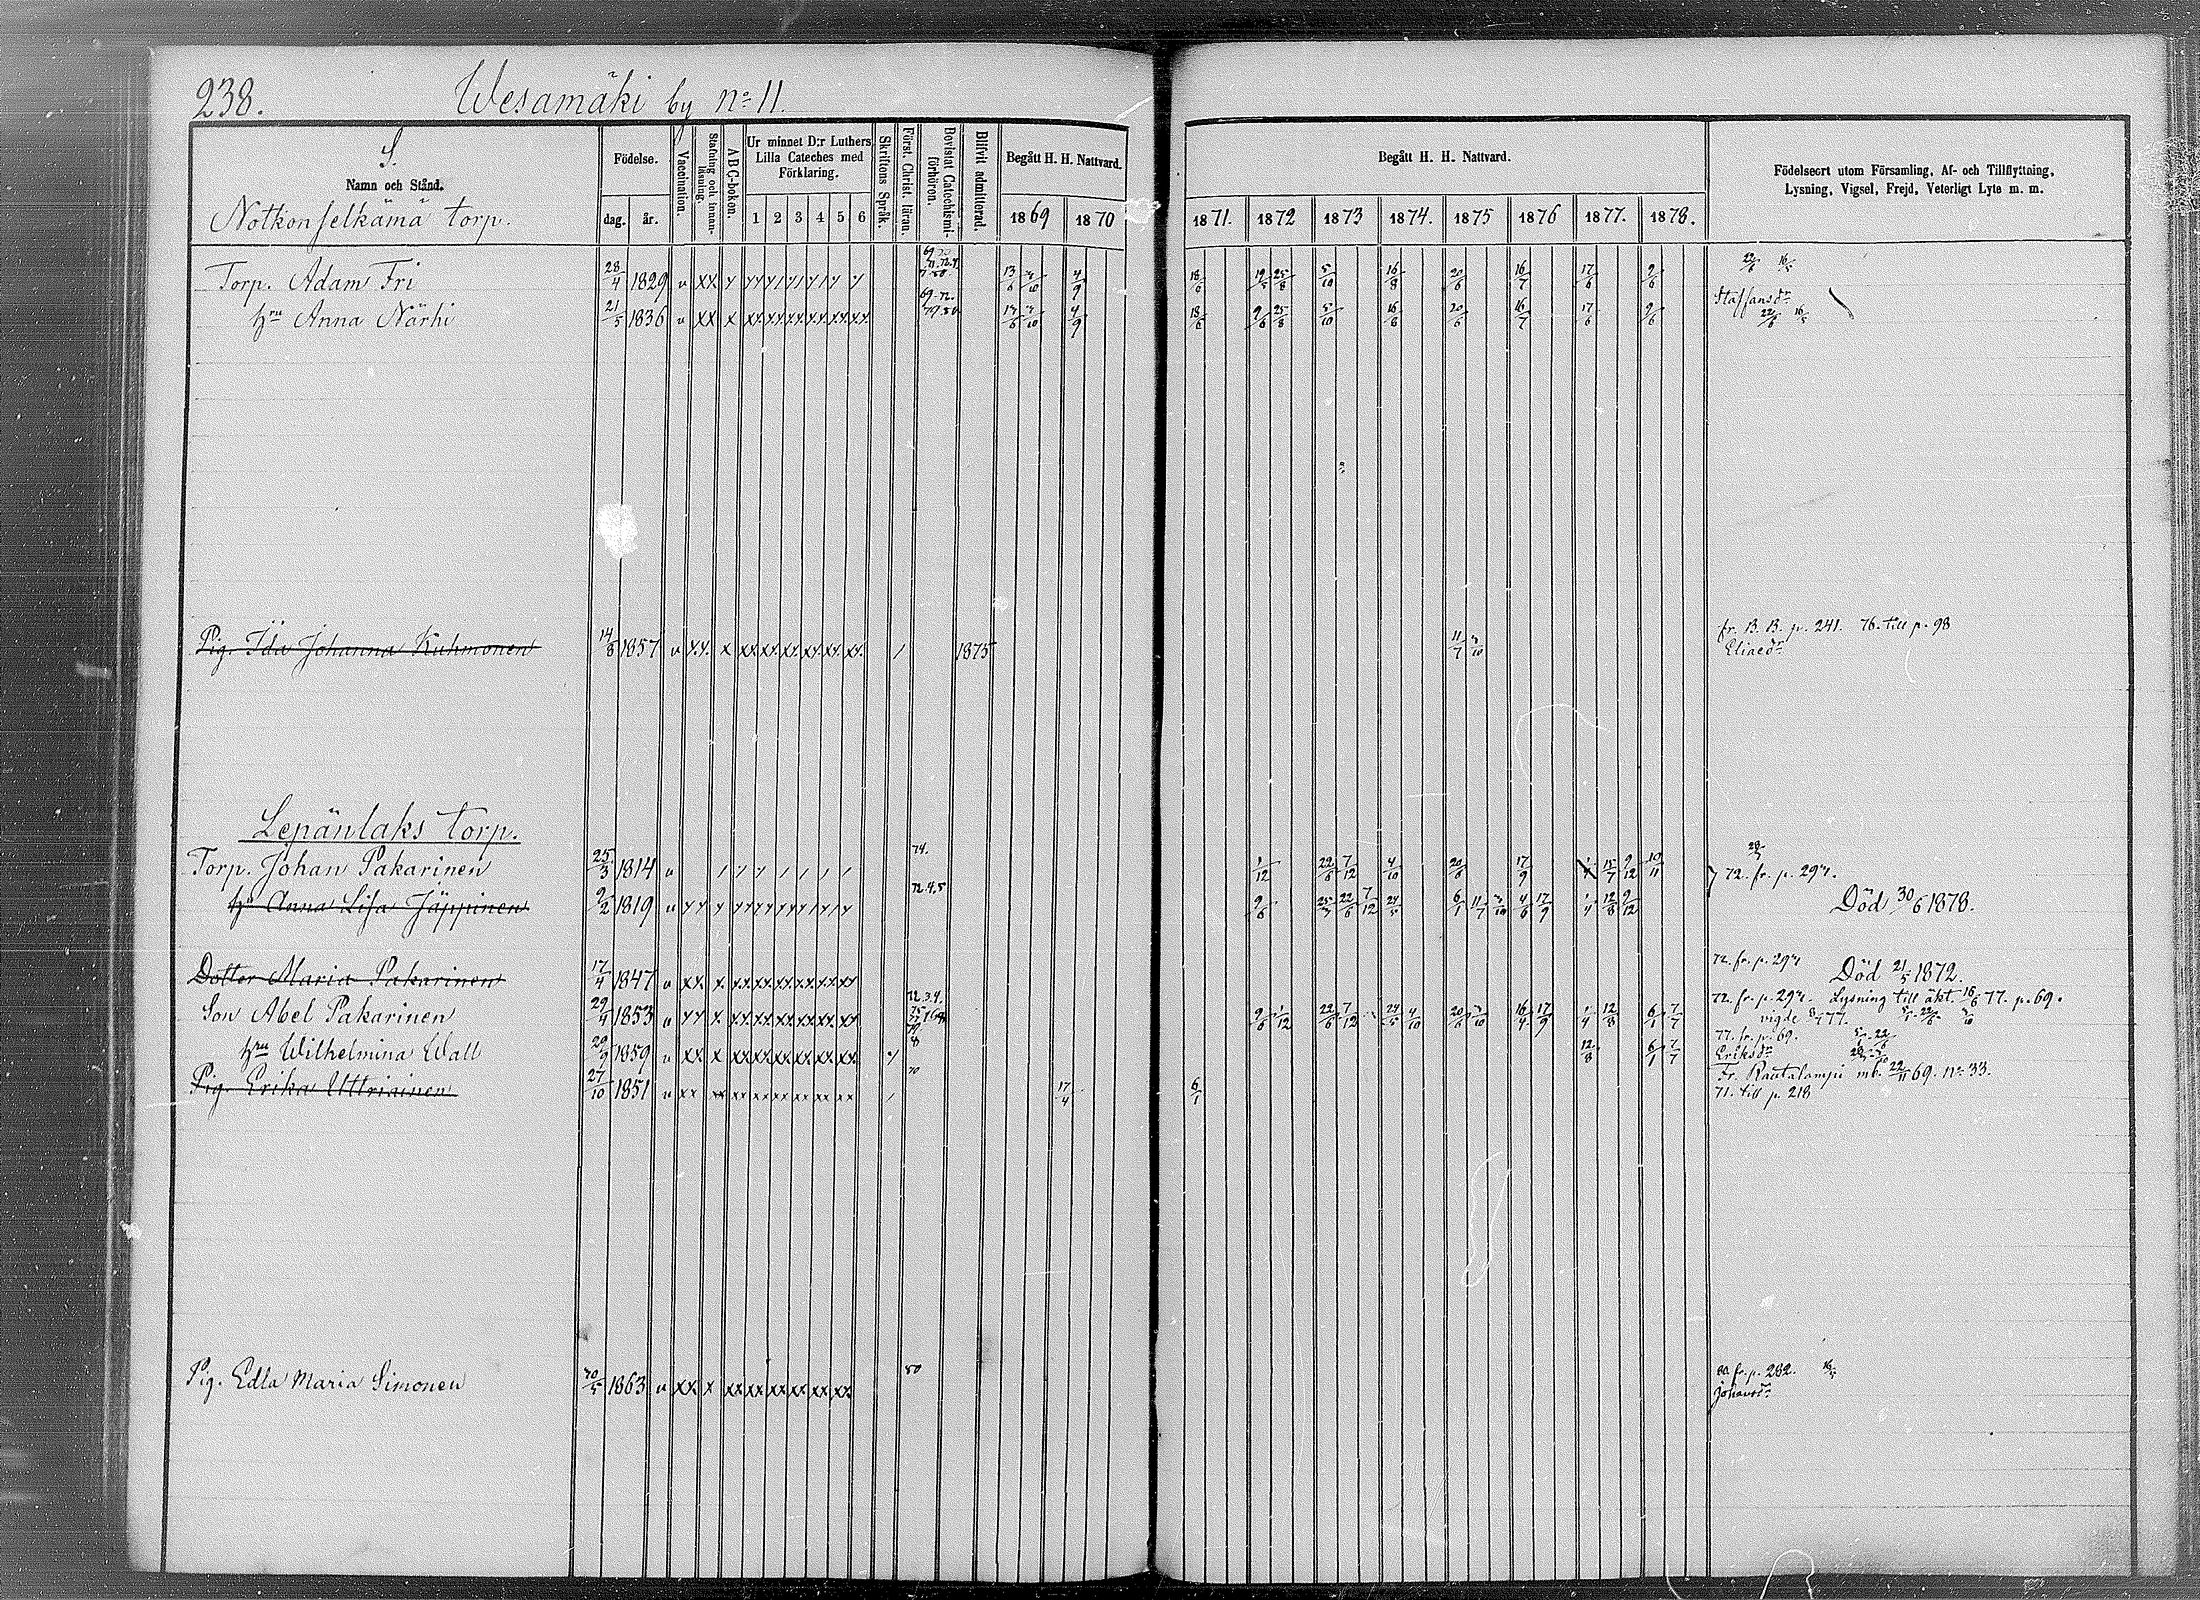 238. Wesamäki by No 11.
S.
Namn och Stånd.
Födelse.
dag. år.
Vaccination.
Stafning och innanläsning.
A B C-bokon.
Ur minnet D:r Luthers Lilla Cateches med Förklaring.
1 2 3 4 5 6
Skriftens Språk.
Först. Christ. läran.
Bevistat Catechismi-förhören.
Blifvit admitterad.
Begått H. H. Nattvard.
1869 1870
Begått H. H. Nattvard.
1871. 1872 1873 1874. 1875 1876 1877. 1878.
Födelseort utom Församling, Af- och Tillflyttning,
Lysning, Vigsel, Frejd, Veterligt Lyte m. m.
Notkonselkämä torp.
Torp. Adam Fri 28/4 1829 v xx 13/6 4/9 18/6 25/8 5/10 16/8 20/6 16/7 17/6 9/6 22/6 16/5
hru Anna Närhi 21/5 1836 v xx x xx xx xx xx xx xx 13/6 4/9 18/6 9/6 25/8 5/10 16/8 20/6 16/7 17/6 9/6 Staffansdr 22/6 16/5
Pig. Ida Johanna Kuhmonen 14/8 1857 v x.x. x xx xx xx xx xx xx / 1875 11/7 fr. B. B. p. 241. 76. till p. 98
Eliaedr
Lepänlaks torp.
Torp. Johan Pakarinen 25/3 1814 v 74. 1/12 22/6 7/12 4/10 20/6 17/9 15/7 9/12 10/11 72. fr. p. 294.
hu Anna Lisa Jäppinen 9/2 1819 v 72.4.5 9/6 22/6 7/12 24/5 6/1 11/7 4/6 17/9 12/8 9/12 Död 30/6 1878.
Dotter Maria Pakarinen 17/4 1847 v xx x. xx xx xx xx xx xx 72. fr. p. 294 Död 21/5 1872.
Son Abel Pakarinen 29/4 1853 v 9/6 1/12 22/6 7/12 24/5 4/10 20/6 16/4 17/9 1/4 12/8 6/1 7/7 72. fr. p. 294. Lysning till äkt. 16/6 77. p. 69.
vigde 8/7 77.
hru Wilhelmina Wall 29/9 1859 v xx x xx xx xx xx xx xx 12/8 6/1 7/7 77. fr. p. 69.
Eriksdr
Pig. Erika Uttriainen 27/10 1851 v xx xx xx xx xx xx xx xx / 70 17/4 6/1 Fr. Rautalampi mb. 22/11 69. No 33.
71. till p. 218
Pig. Edla Maria Simonen 1863 v xx x xx xx xx xx xx xx 80 80. fr. p. 282. 16/5
Johansdr